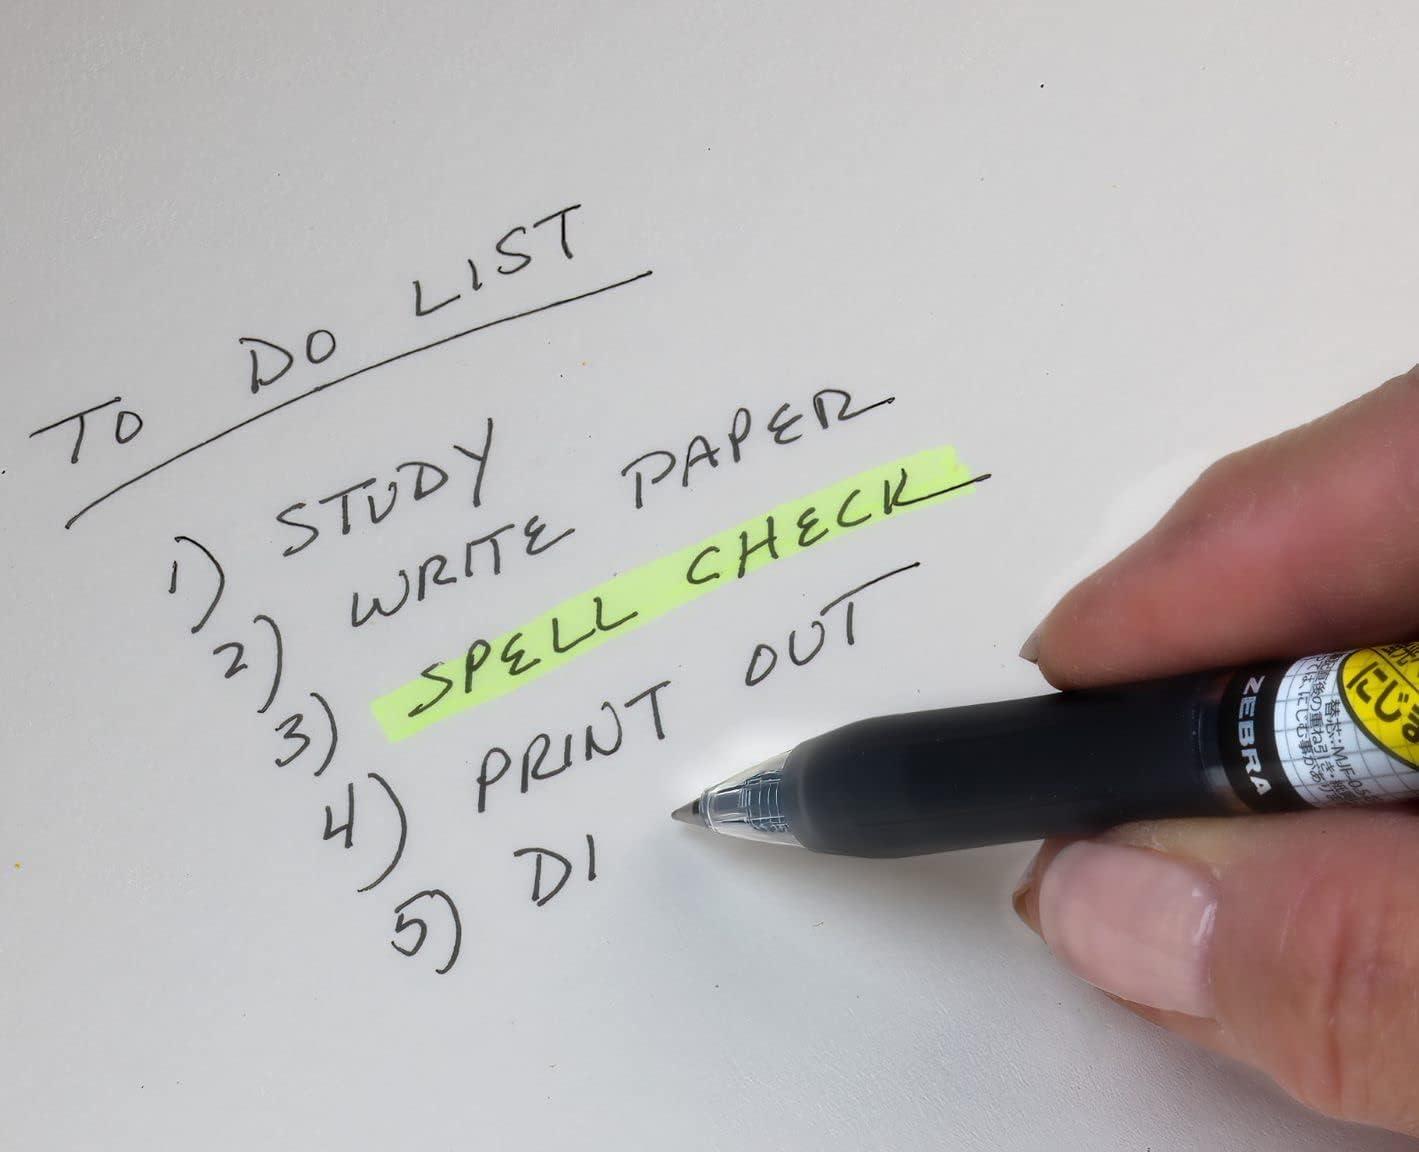 TO DO LIST
1) STUDY
2) WRITE PAPER
3) SPELL CHECK
4) PRINT OUT
5) DI
ZEBRA
替芯:MJF-0.5
にじ